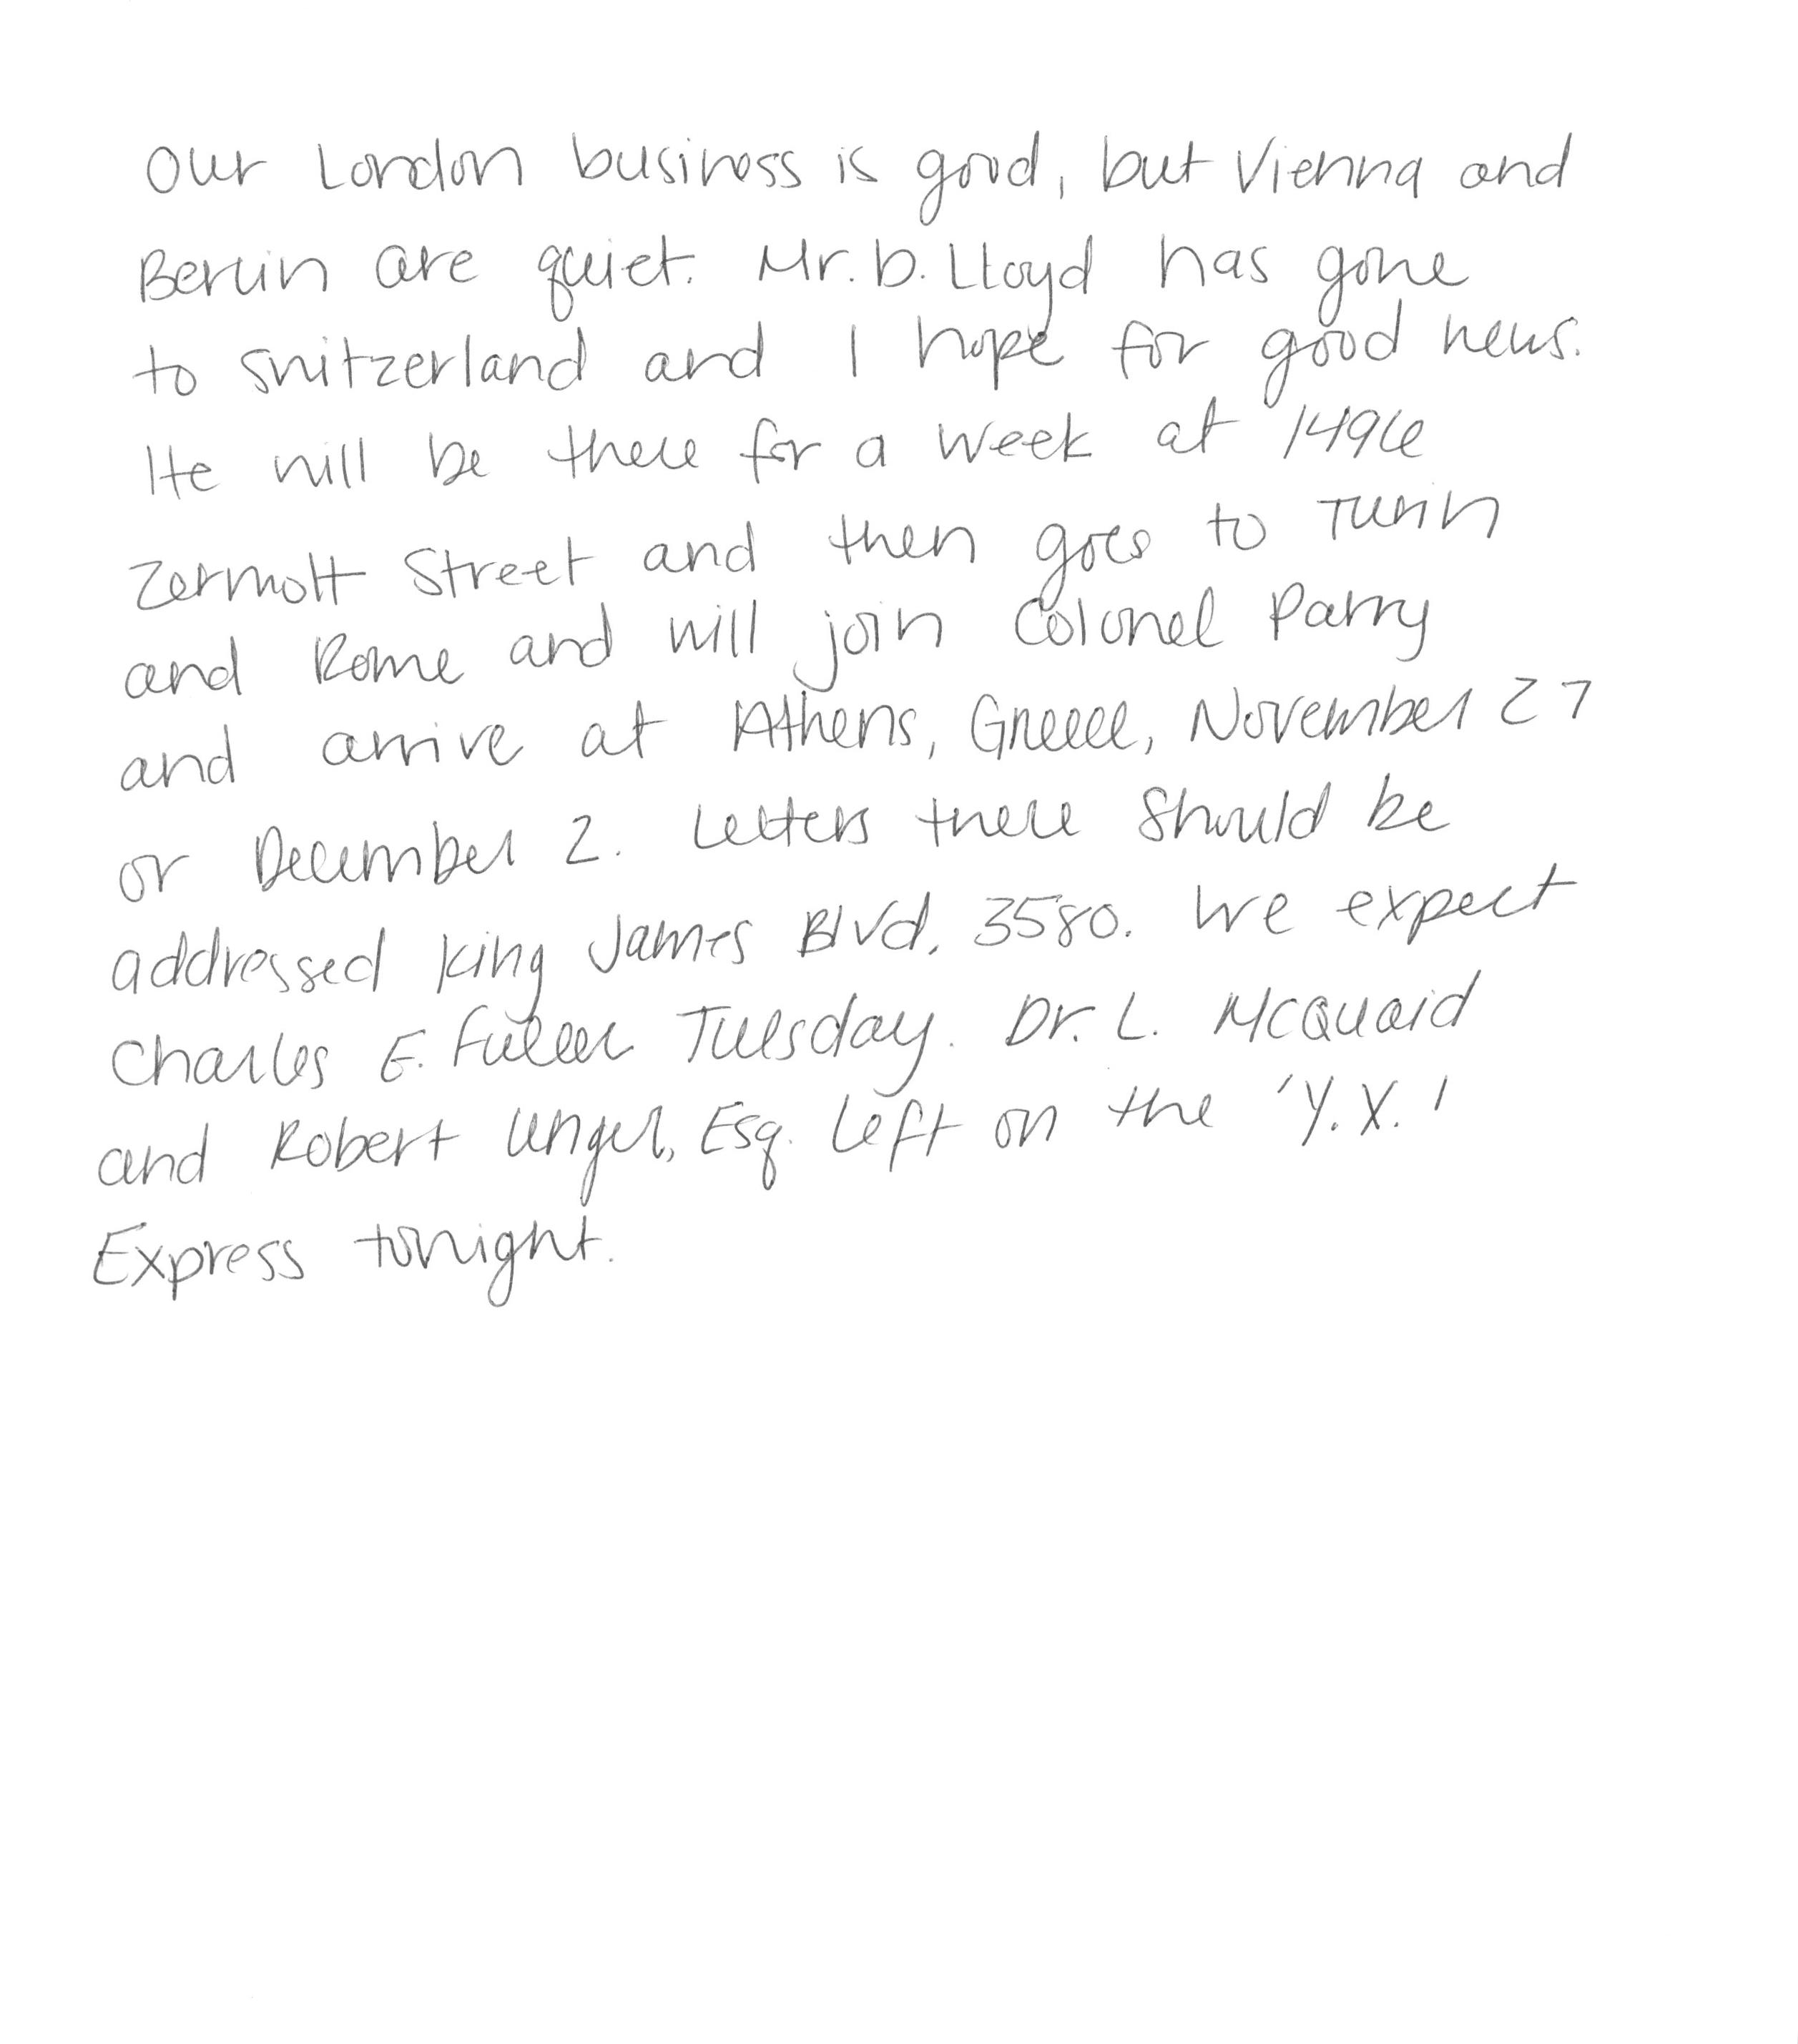 Our London business is good, but Vienna and
Berlin are quiet. Mr. D. Lloyd has gone
to Switzerland and I hope for good news.
He will be there for a week at 1496
Zermott Street and then goes to Turin
and Rome and will join Colonel Parry
and arrive at Athens, Greece, November 27
or December 2. Letters there should be
addressed King James Blvd. 3580. We expect
Charles E. Fuller Tuesday. Dr. L. McQuaid
and Robert Unger, Esq. left on the 'Y.X.'
Express tonight.